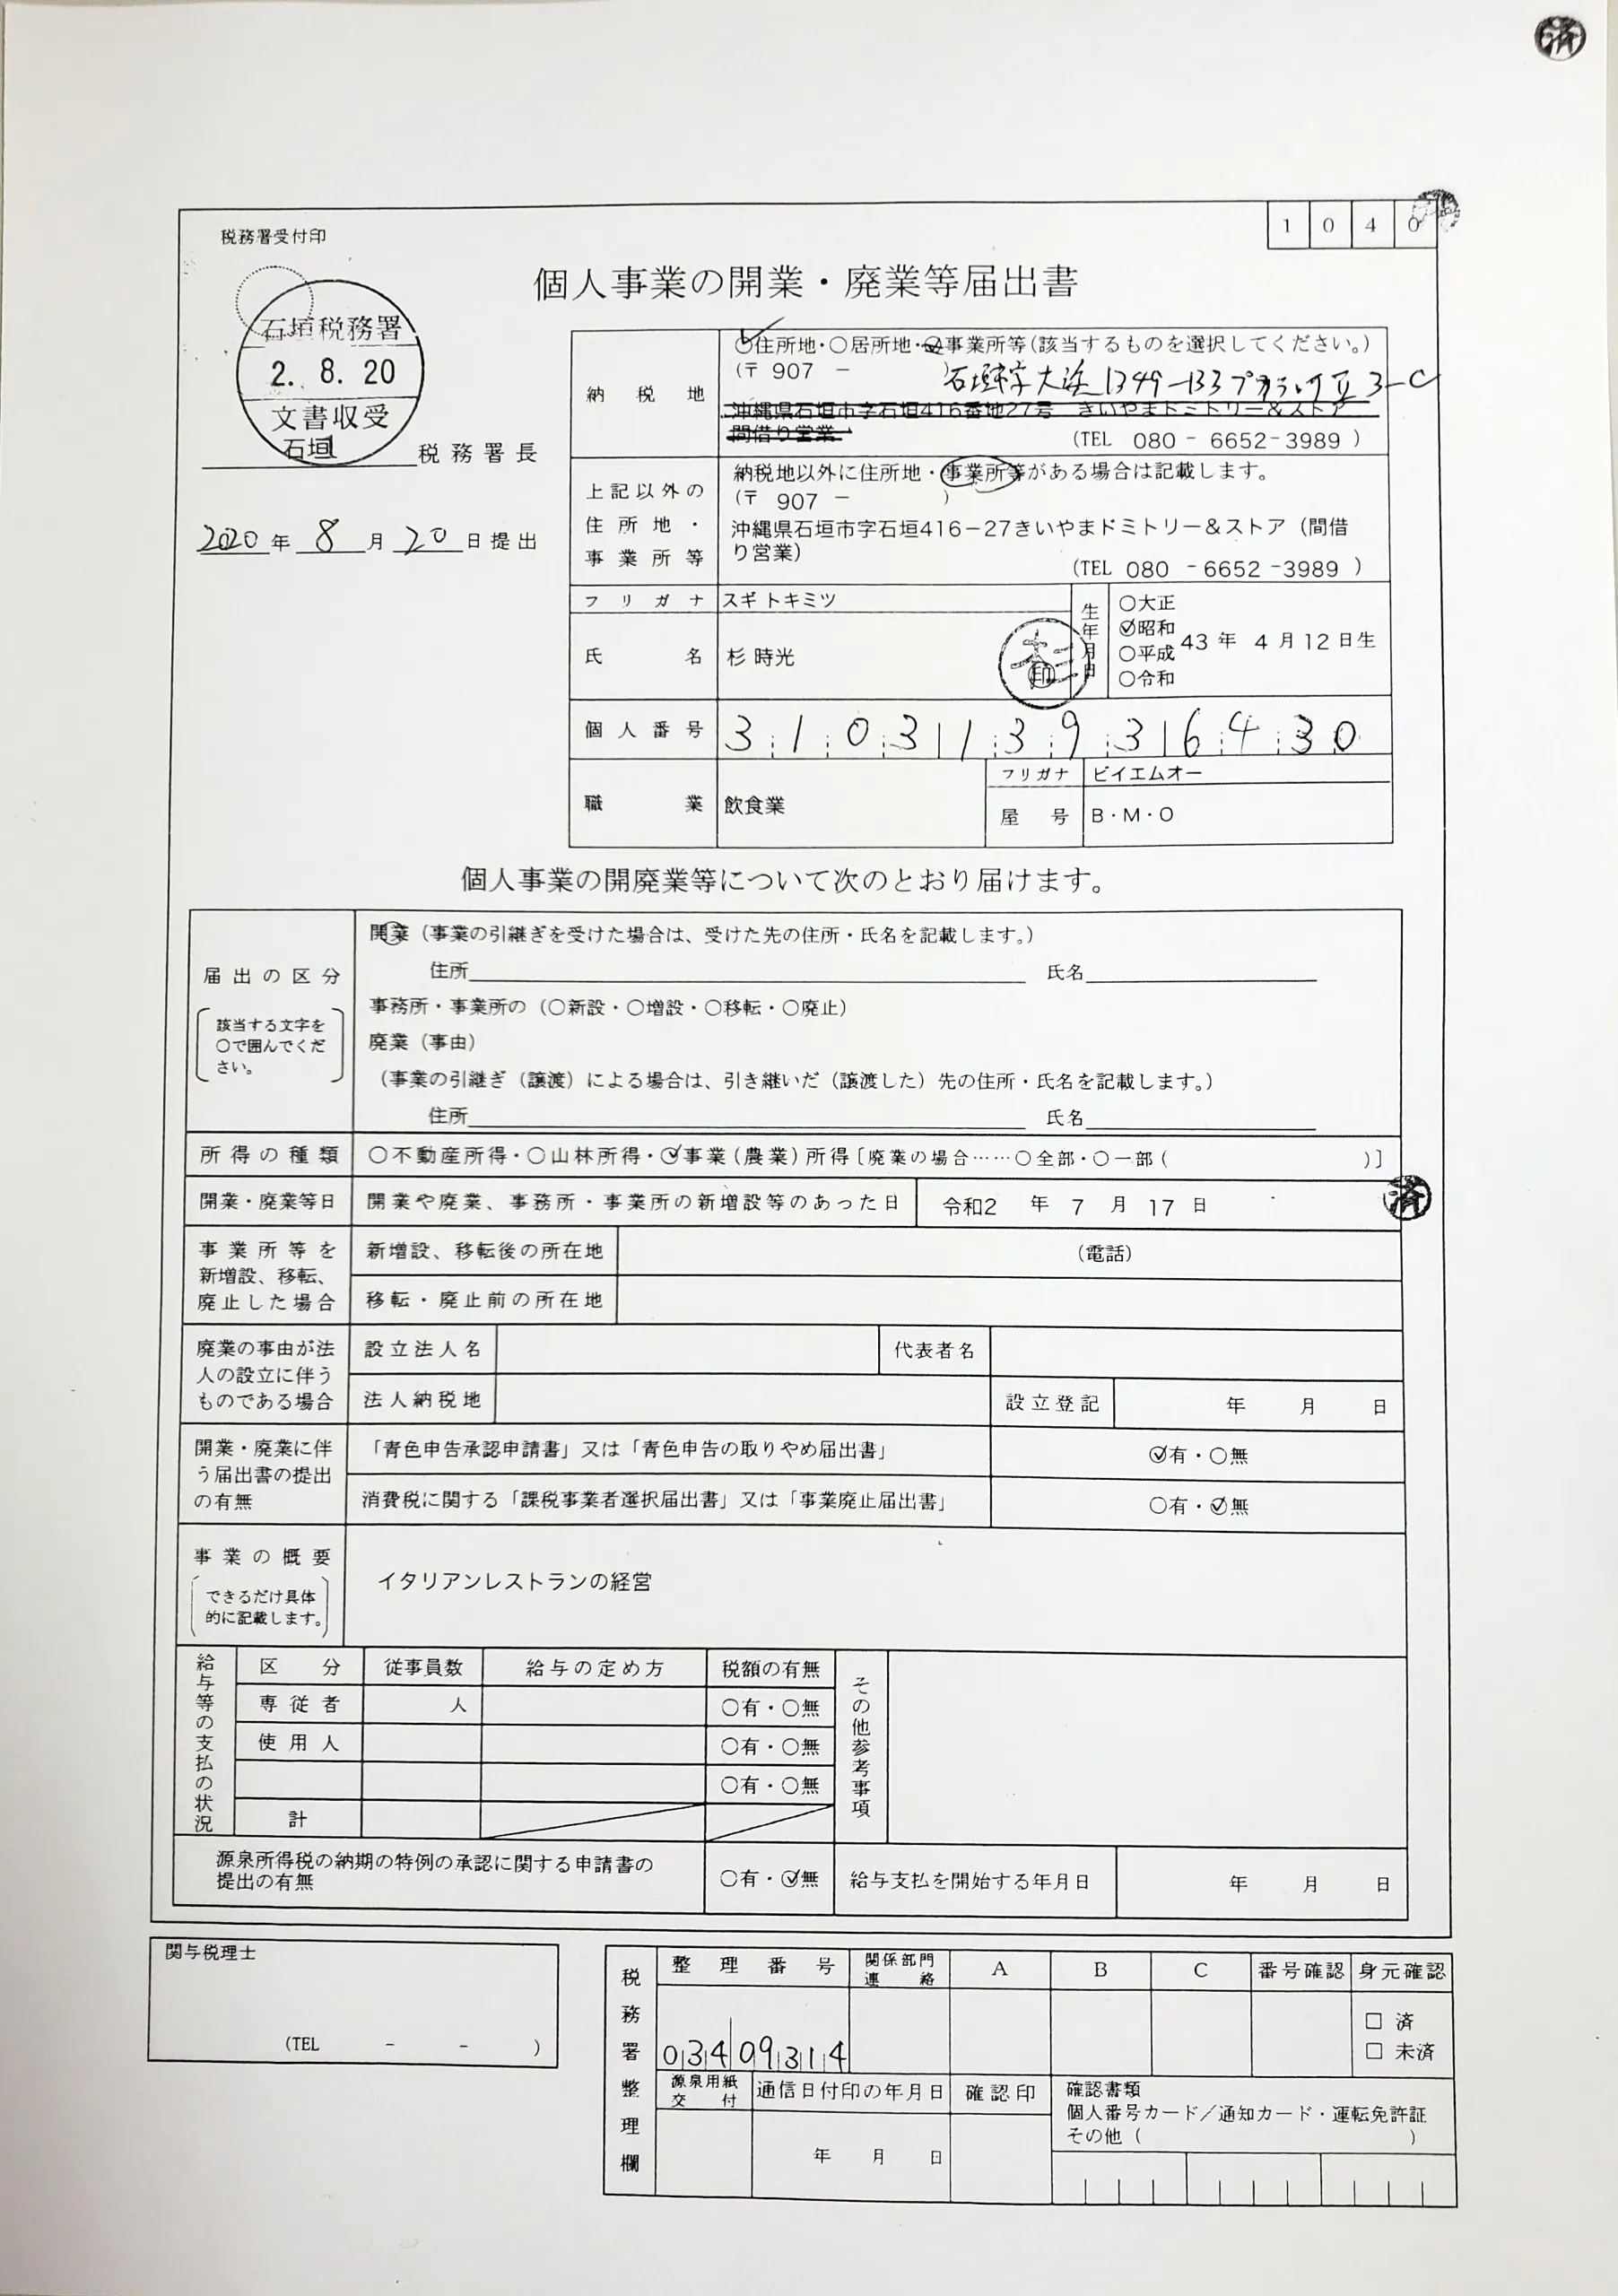 済
1040
税務署受付印
個人事業の開業・廃業等届出書
石垣税務署
2. 8. 20
文書収受
石垣 税務署長
2020年 8月20日提出
納税地
○住所地・○居所地・○事業所等(該当するものを選択してください。)
(〒 907 − )
石垣市字大浜1349-133 Ⅱ 3-C
沖縄県石垣市字石垣416番地27号 きいやまドミトリー&ストア
間借り営業
(TEL 080 − 6652−3989 )
上記以外の住所地・事業所等
納税地以外に住所地・事業所等がある場合は記載します。
(〒 907 − )
沖縄県石垣市字石垣416−27きいやまドミトリー&ストア(間借
り営業)
(TEL 080 −6652 −3989 )
フリガナ スギ トキミツ
氏名 杉 時光 印
生年月日
○大正
○昭和
○平成
○令和
43 年 4 月 12 日生
個人番号 310311393164 30
職業 飲食業
フリガナ ビイエムオー
屋号 B・M・O
個人事業の開廃業等について次のとおり届けます。
届出の区分
該当する文字を
○で囲んでくだ
さい。
開業(事業の引継ぎを受けた場合は、受けた先の住所・氏名を記載します。)
住所 氏名
事務所・事業所の(○新設・○増設・○移転・○廃止)
廃業(事由)
(事業の引継ぎ(譲渡)による場合は、引き継いだ(譲渡した)先の住所・氏名を記載します。)
住所 氏名
所得の種類 ○不動産所得・○山林所得・○事業(農業)所得[廃業の場合……○全部・○一部( )]
開業・廃業等日 開業や廃業、事務所・事業所の新増設等のあった日 令和2 年 7 月 17 日
済
事業所等を
新増設、移転、
廃止した場合
新増設、移転後の所在地 (電話)
移転・廃止前の所在地
廃業の事由が法
人の設立に伴う
ものである場合
設立法人名 代表者名
法人納税地 設立登記 年 月 日
開業・廃業に伴
う届出書の提出
の有無
「青色申告承認申請書」又は「青色申告の取りやめ届出書」 ○有・○無
消費税に関する「課税事業者選択届出書」又は「事業廃止届出書」 ○有・○無
事業の概要
できるだけ具体
的に記載します。
イタリアンレストランの経営
給与等の支払の状況
区分 従事員数 給与の定め方 税額の有無
専従者 人 ○有・○無
使用人 ○有・○無
○有・○無
計
その他参考事項
源泉所得税の納期の特例の承認に関する申請書の
提出の有無
○有・○無 給与支払を開始する年月日 年 月 日
関与税理士
(TEL − − )
税務署整理欄
整理番号 関係部門連絡 A B C 番号確認 身元確認
03409314
□ 済
□ 未済
源泉用紙交付 通信日付印の年月日 確認印
年 月 日
確認書類
個人番号カード/通知カード・運転免許証
その他( )